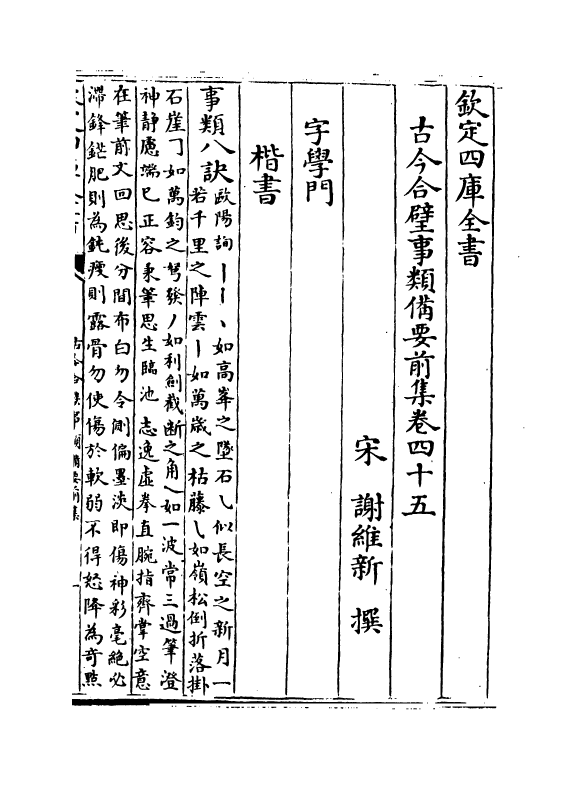 欽定四庫全書
古今合璧事類備要前集卷四十五
宋 謝維新 撰
字學門
楷書
事類八訣歐陽詢丨丨丶如高峯之墜石乚似長空之新月一
若千里之陣雲丨如萬歲之枯藤㇂如嶺松倒折落掛
石崖㇆如萬鈞之弩發丿如利劍截断之角乀如一波常三過筆澄
神静慮端己正容秉筆思生臨池志逸虚拳直腕指齊掌空意
在筆前文囬思後分間布白勿令側偏墨淡即傷神彩毫絶必
滯鋒鋩肥則為鈍瘦則露骨勿使傷於軟弱不得怒降為竒㸃